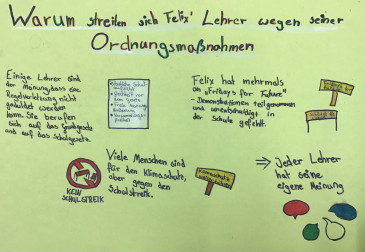 Warum streiten sich Felix' Lehrer wegen seiner
Ordnungsmaßnahmen
Einige Lehrer sind
der Meinung, dass eine
Regelverletzung nicht
geduldet werden
kann. Sie berufen
sich auf das Grundgesetz
und auf das Schulgesetz.
Felix hat mehrmals
an „Fridays for Future"
- Demonstrationen teilgenommen
und unentschuldigt in
der Schule gefehlt.
KEIN
SCHULSTREIK
Viele Menschen sind
für den Klimaschutz,
aber gegen den
Schulstreik.
⇒ Jeder Lehrer
hat seine
eigene Meinung